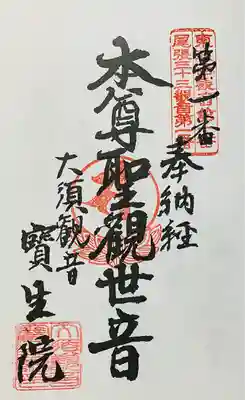 第一番
奉納経
本尊聖観世音
大須観音
寶生院
尾張三十三観音第一番